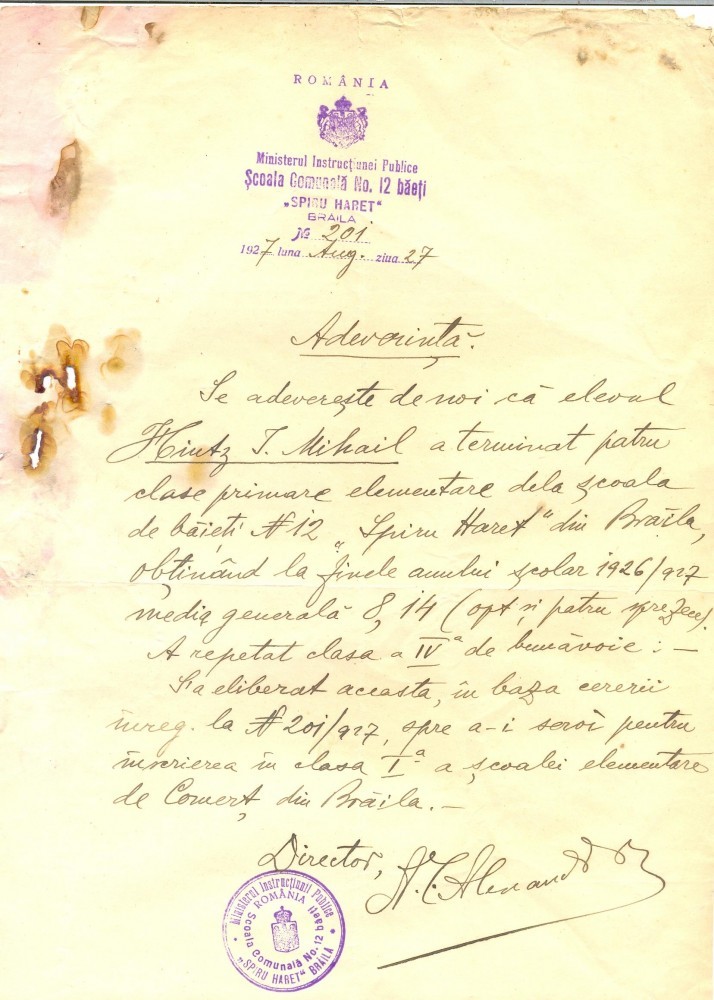 ROMÂNIA
Ministerul Instrucţiunei Publice
Şcoala Comunală No. 12 băeţi
„SPIRU HARET“
BRAILA
№ 201
1927 luna Aug. ziua 27
Adeverinţă.
Se adevereşte de noi că elevul
Hintz I. Mihail a terminat patru
clase primare elementare dela şcoala
de băieţi № 12 „Spiru Haret“ din Brăila,
obţinând la finele anului şcolar 1926/927
media generală 8,14 (opt şi patru spre zece).
A repetat clasa a IVa de bunăvoie: —
S'a eliberat aceasta, în baza cererii
înreg. la № 201/927, spre a-i servi pentru
înscrierea în clasa I.a a şcoalei elementare
de Comerţ din Brăila. —
Director,
Ministerul Instrucţiunii Publice
ROMÂNIA
Şcoala Comunală No. 12 băeti
„SPIRU HARET“ BRĂILA